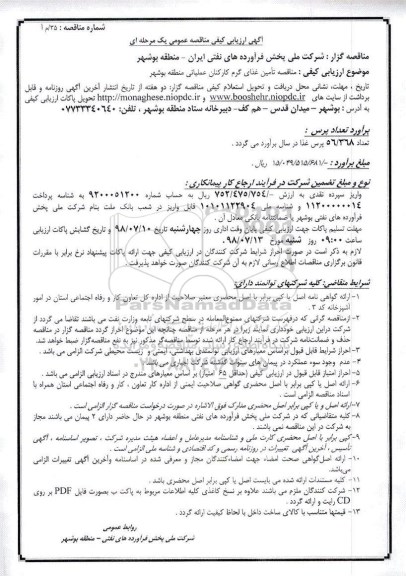 شماره مناقصه : ۳۵/م أ
آگهی ارزیابی کیفی مناقصه عمومی یک مرحله ای
مناقصه گزار : شرکت ملی پخش فرآورده های نفتی ایران – منطقه بوشهر
موضوع ارزیابی کیفی : مناقصه تأمین غذای گرم کارکنان عملیاتی منطقه بوشهر
تاریخ ، مهلت، نشانی محل دریافت و تحویل استعلام کیفی مناقصه گزار: دو هفته از تاریخ انتشار آخرین آگهی روزنامه و قابل
برداشت از سایت های www.booshehr.niopdc.ir و http://monaghese.niopdc.ir تحویل پاکات ارزیابی کیفی
به آدرس : بوشهر – میدان قدس – هم کف- دبیرخانه ستاد منطقه بوشهر ، تلفن: ۰۷۷۳۳۳۴۰۶۴۰
برآورد تعداد پرس :
تعداد ۵۶/۳۶۸ پرس غذا در سال برآورد می گردد .
مبلغ برآورد : -/۱۵/۰۴۹/۵۱۵/۶۸۱ ریال.
نوع و مبلغ تضمین شرکت در فرآیند ارجاع کار پیمانکاری :
واریز سپرده نقدی به ارزش -/۷۵۲/۴۷۵/۷۵۴ ریال به حساب شماره ۹۲۰۰۰۵۱۲۰۰ به شناسه پرداخت
۱۱۲۰۰۰۰۰۰۱۴ و شناسه ملی ۱۰۱۰۱۱۲۲۹۰۴ قابل واریز در شعب بانک ملت بنام شرکت ملی پخش
فرآورده های نفتی بوشهر یا ضمانتنامه بانکی معادل آن .
مهلت تسلیم پاکات جهت ارزیابی کیفی پایان وقت اداری روز چهارشنبه تاریخ ۹۸/۰۷/۱۰ و تاریخ گشایش پاکات ارزیابی
ساعت ۰۹:۰۰ روز شنبه مورخ ۹۸/۰۷/۱۳ می باشد .
لازم به ذکر است در صورت احراز شرایط شرکت کنندگان در ارزیابی کیفی جهت ارائه پاکات پیشنهاد نرخ برابر با مقررات
قانون برگزاری مناقصات اطلاع رسانی لازم به آن شرکت کنندگان صورت خواهد پذیرفت .
شرایط متقاضی: کلیه شرکتهای توانمند دارای:
۱- ارائه گواهی نامه اصل یا کپی برابر با اصل محضری معتبر صلاحیت از اداره کل تعاون کار و رفاه اجتماعی استان در امور
آشپزخانه کد ۳ .
۲- ازمناقصه گرانی که درفهرست شرکتهای ممنوع‌المعامله در سطح شرکتهای تابعه وزارت نفت می باشند تقاضا می گردد از
شرکت دراین ارزیابی خودداری نمایند زیرا در هر مرحله از مناقصه چنانچه این موضوع احراز گردد مناقصه گزار در مناقصه
حذف و ضمانت‌نامه شرکت در فرآیند ارجاع کار ارائه شده توسط مناقصه‌گر مذکور نیز به نفع مناقصه‌گزار ضبط خواهد شد.
۳- احراز شرایط قابل قبول براساس معیارهای ارزیابی توانمندی بهداشتی، ایمنی و زیست محیطی شرکت الزامی می باشد .
۴- عدم وجود سوء عملکرد در پیمان های سنوات گذشته شرکت اجباری می باشد .
۵- احراز امتیاز قابل قبول در ارزیابی کیفی (حداقل ۶۵ امتیاز) بر اساس معیارهای مندرج در اسناد ارزیابی الزامی می باشد .
۶- ارائه اصل یا کپی برابر با اصل محضری گواهی صلاحیت ایمنی از اداره کار تعاون ، کار و رفاه اجتماعی استان همراه با
اسناد مناقصه الزامی است .
۷- ارائه اصل و یا کپی برابر اصل محضری مدارک فوق الاشاره در صورت درخواست مناقصه گزار الزامی است .
۸- کلیه متقاضیانی که در شرکت ملی پخش فرآورده های نفتی منطقه بوشهر در حال حاضر دارای ۲ پیمان می باشند مجاز
به شرکت در این مناقصه نمی باشند .
۹- کپی برابر با اصل محضری کارت ملی و شناسنامه مدیرعامل و اعضاء هیئت مدیره شرکت ، تصویر اساسنامه ، آگهی
تأسیس ، آخرین آگهی تغییرات در روزنامه رسمی و کد اقتصادی و شناسه ملی الزامی است .
۱۰- ارائه اصل‌گواهی صحت امضاء جهت امضاءکنندگان مجاز و معرفی شده در اساسنامه وآخرین آگهی تغییرات الزامی
می‌باشد.
۱۱- کلیه مستندات ارائه شده می بایست اصل یا کپی برابر اصل محضری باشد .
۱۲- شرکت کنندگان ملزم می باشند علاوه بر نسخ کاغذی کلیه اطلاعات مربوط به پاکت ب بصورت فایل PDF بر روی
CD رایت و ارائه گردد .
۱۳- قیمتها متناسب با کالای ساخت داخل با لحاظ کیفیت ارائه گردد .
روابط عمومی
شرکت ملی پخش فرآورده های نفتی – منطقه بوشهر